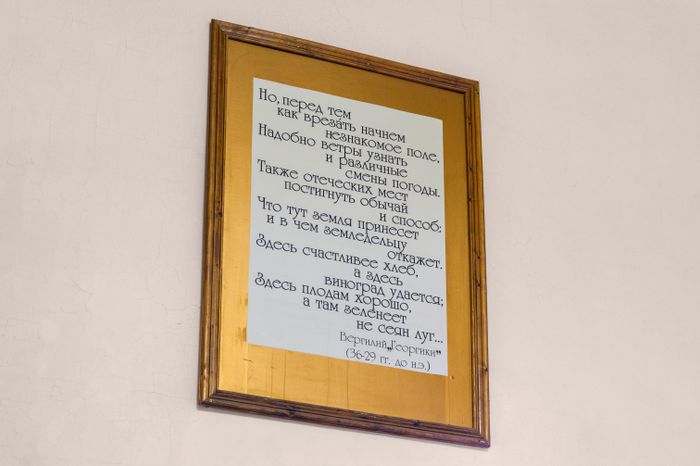 Но, перед тем
как врезáть начнем
незнакомое поле,
Надобно ветры узнать
и различные
смены погоды.
Также отеческих мест
постигнуть обычай
и способ:
Что тут земля принесет
и в чем земледельцу
откажет.
Здесь счастливее хлеб,
а здесь
виноград удается;
Здесь плодам хорошо,
а там зеленеет
не сеян луг...
Вергилий „Георгики”
(36-29 гг. до н.э.)